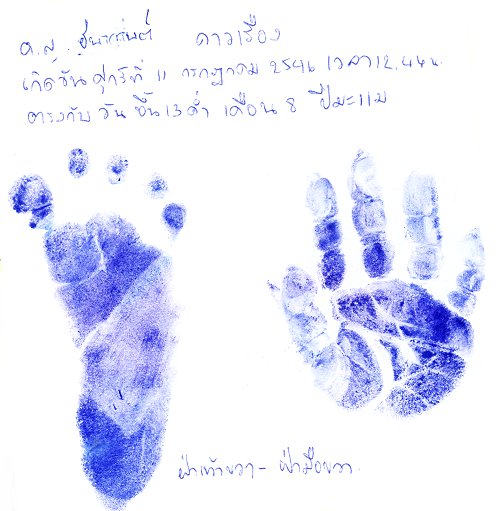 ด.ญ. ชนากานต์ ดาวเรือง
เกิดวันศุกร์ที่ 11 กรกฎาคม 2546 เวลา 12.44 น.
ตรงกับ วัน ขึ้น 13 ค่ำ เดือน 8 ปีมะแม
ฝ่าเท้าขวา - ฝ่ามือขวา